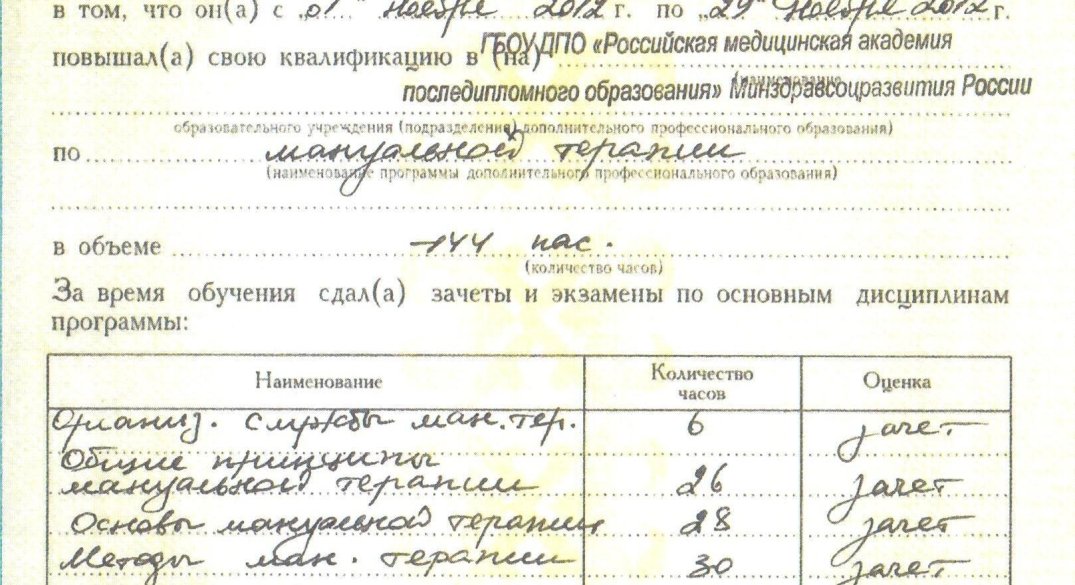 в том, что он(а) с „01" ноября 2012 г. по „29" ноября 2012 г.
повышал(а) свою квалификацию в (на) ГБОУ ДПО «Российская медицинская академия
(наименование
последипломного образования» Минздравсоцразвития России
образовательного учреждения (подразделения) дополнительного профессионального образования)
по мануальной терапии
(наименование программы дополнительного профессионального образования)
в объеме 144 час.
(количество часов)
За время обучения сдал(а) зачеты и экзамены по основным дисциплинам
программы:
Наименование Количество часов Оценка
Организ. службы ман. тер. 6 зачет
Общие принципы
мануальной терапии 26 зачет
Основы мануальной терапии 28 зачет
Методы ман. терапии 30 зачет